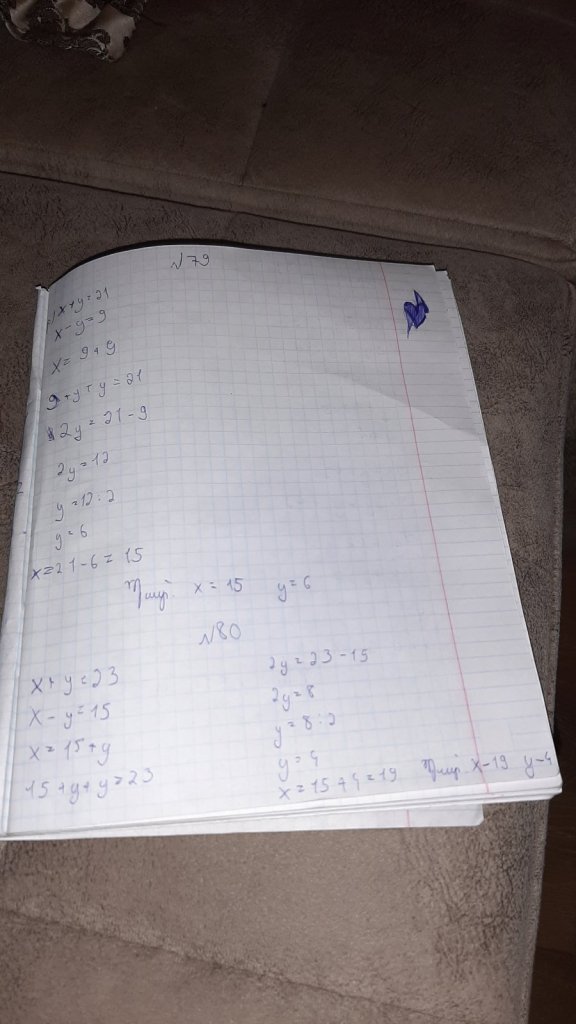 №79
x+y=21
x-y=9
x=9+y
9+y+y=21
2y=21-9
2y=12
y=12:2
y=6
x=21-6=15
x=15 y=6
№80
x+y=23
x-y=15
x=15+y
15+y+y=23
2y=23-15
2y=8
y=8:2
y=4
x=15+4=19
x-19 y-4